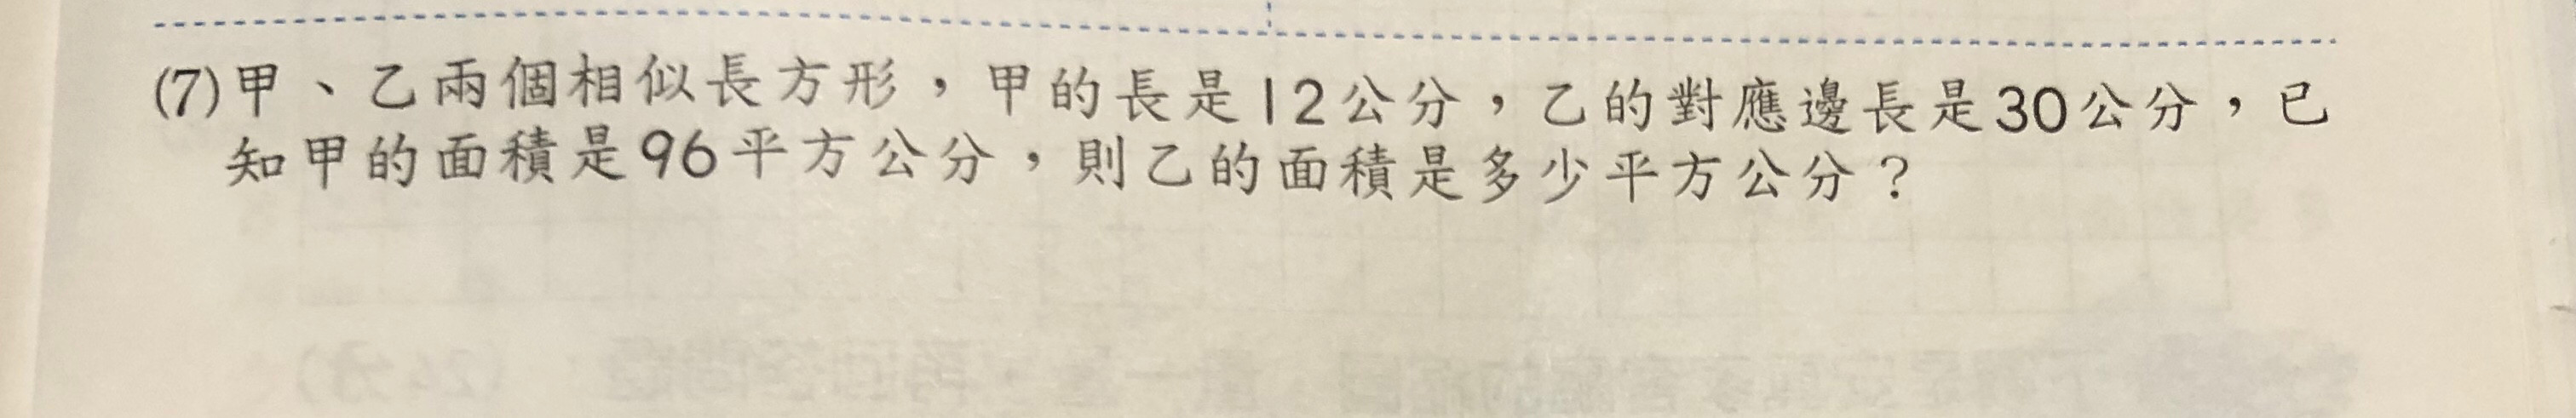 (7)甲、乙兩個相似長方形，甲的長是12公分，乙的對應邊長是30公分，已
知甲的面積是96平方公分，則乙的面積是多少平方公分？